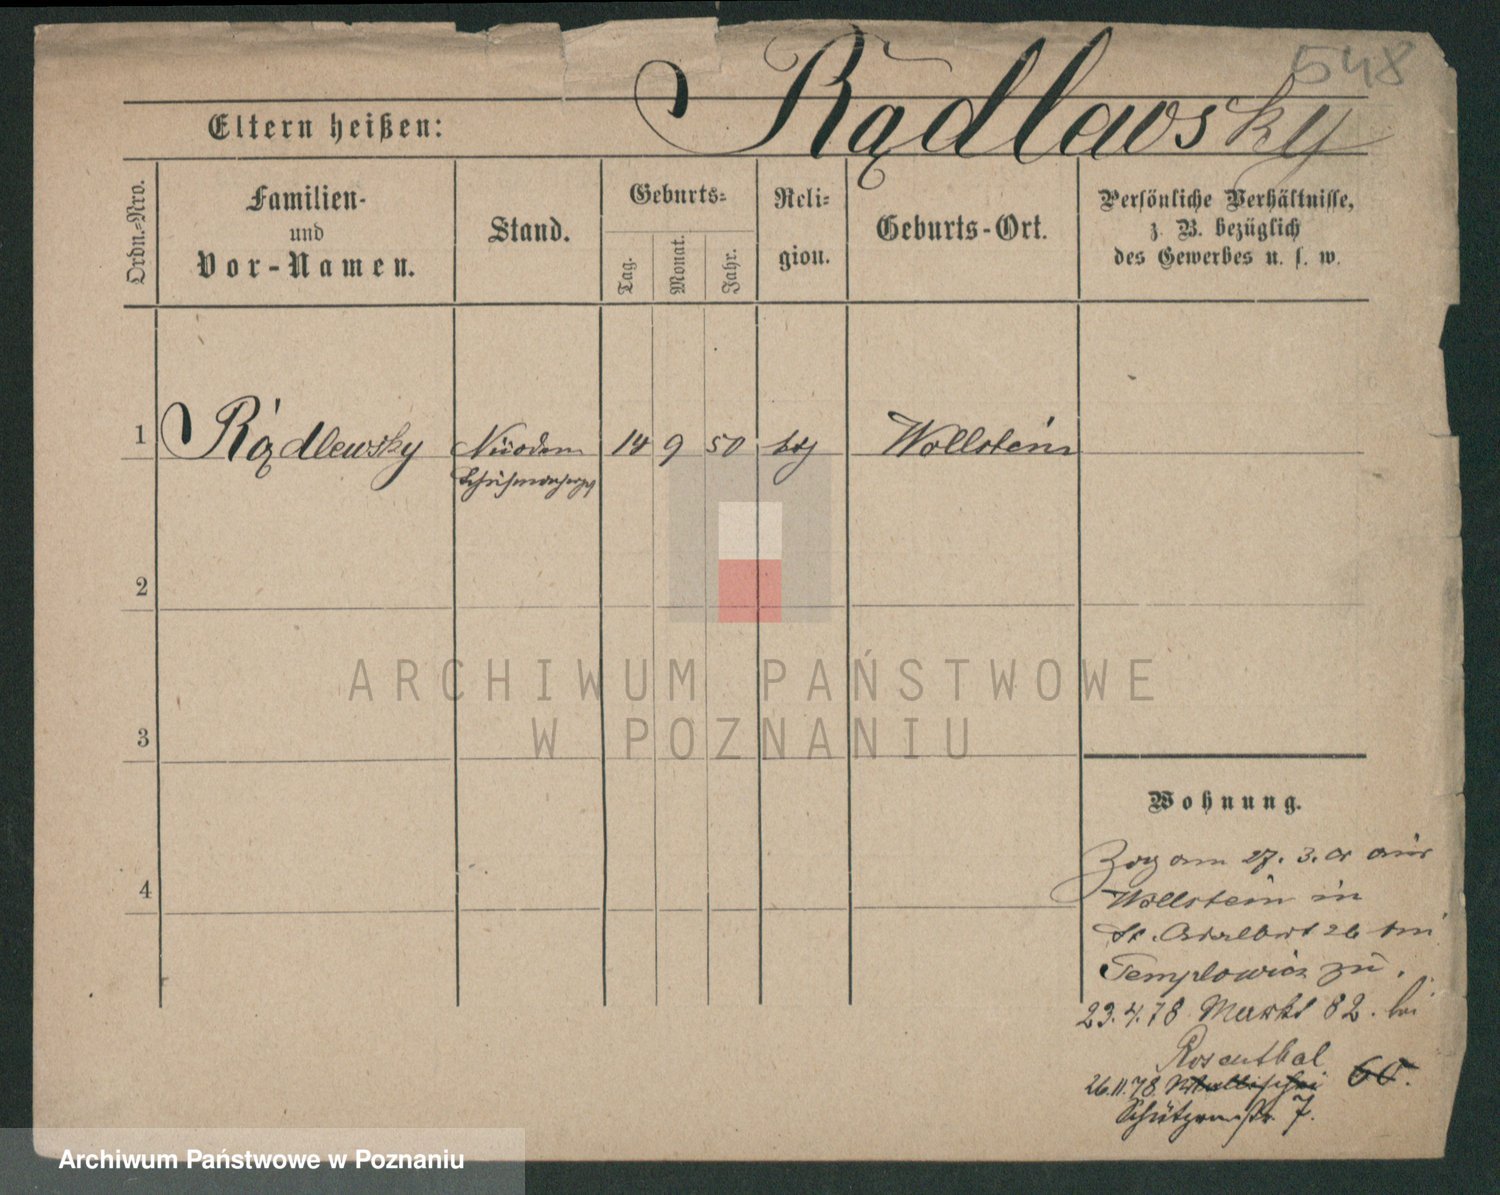 548
Rądlewsky
Eltern heißen:
Ordn.-Nro.
Familien-
und
Vor-Namen.
Stand.
Geburts-
Tag.
Monat.
Jahr.
Reli-
gion.
Geburts-Ort.
Persönliche Verhältnisse,
z. B. bezüglich
des Gewerbes u. s. w.
1 Rądlewsky 14 9 50 Wollstein
2
3
4
ARCHIWUM PAŃSTWOWE
W POZNANIU
Wohnung.
Zog am 27. 3. cr aus
Wollstein in
St. Adalbert 26 bei
Templowicz zu.
23.4.78 Markt 82. bei
Rosenthal
26.11.78 Wallischei 60.
Schützenstr. 7.
Archiwum Państwowe w Poznaniu